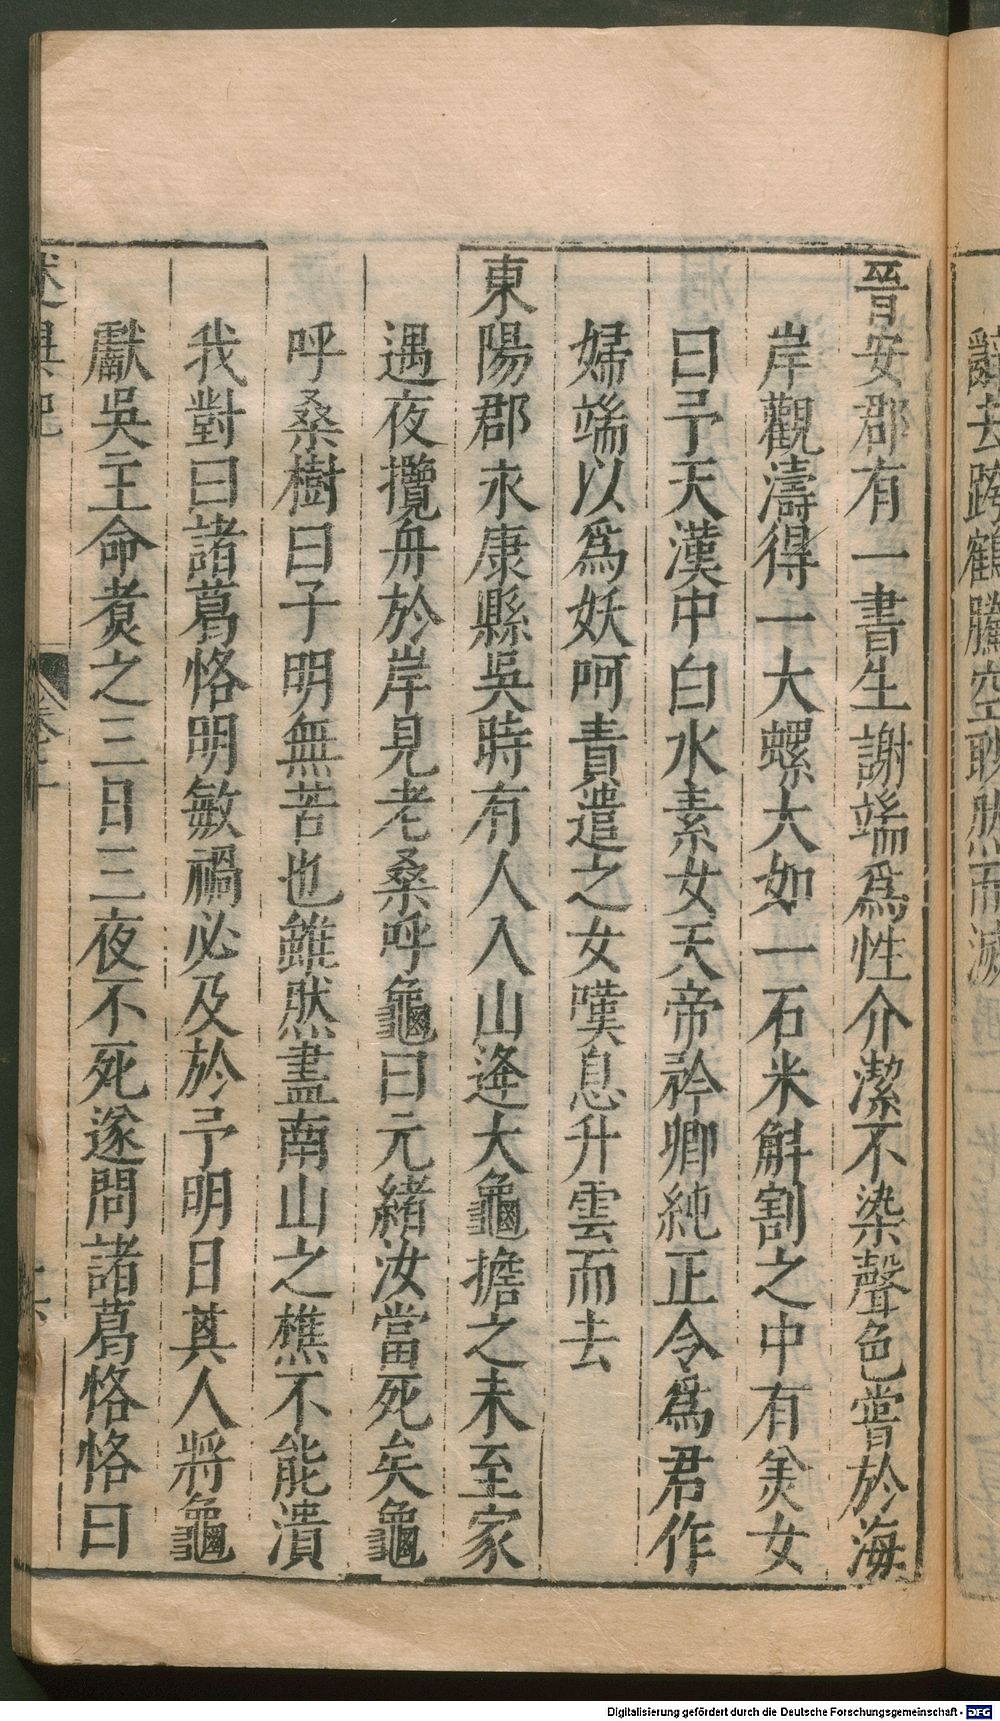 辭去跨鶴騰空眇然而滅
晉安郡有一書生謝端爲性介潔不染聲色嘗於海
岸觀濤得一大螺大如一石米斛割之中有美女
曰予天漢中白水素女天帝矜卿純正令爲君作
婦端以爲妖呵責遣之女嘆息升雲而去
東陽郡永康縣吳時有人入山逄大龜擔之未至家
遇夜攬舟於岸見老桑呼龜曰元緒汝當死矣龜
呼桑樹曰子明無苦也雖然盡南山之樵不能潰
我對曰諸葛恪明敏禍必及於予明日其人將龜
獻吳主命煑之三日三夜不死遂問諸葛恪恪曰
述異記 卷上
Digitalisierung gefördert durch die Deutsche Forschungsgemeinschaft - DFG